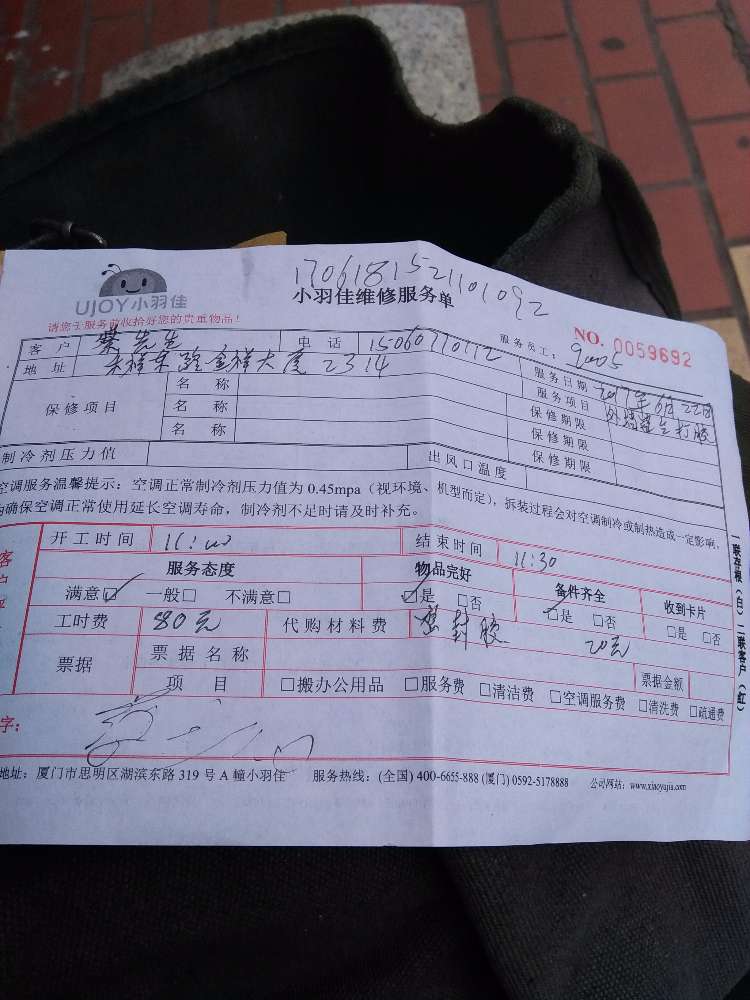 170618152110109２
UJOY小羽佳
小羽佳维修服务单
请您于服务前收拾好您的贵重物品！
NO. 0059692
客 户 蔡先生 电 话 15060770172 服务员工： 9005
地 址 金祥大厦 2314 服务日期 2017年6月22日
保修项目 名 称 服务项目 打胶
名 称 保修期限
名 称 保修期限
保修期限
制冷剂压力值 出风口温度
空调服务温馨提示：空调正常制冷剂压力值为 0.45mpa（视环境、机型而定），拆装过程会对空调制冷或制热造成一定影响，
为确保空调正常使用延长空调寿命，制冷剂不足时请及时补充。
开工时间 11:00 结束时间 11:30
服务态度 物品完好 备件齐全 收到卡片
满意☑ 一般□ 不满意□ ☑是 □否 ☑是 □否 □是 □否
工时费 80元 代购材料费 密封胶 20元
票据 票 据 名 称 票据金额
项 目 □搬办公用品 □服务费 □清洁费 □空调服务费 □清洗费 □疏通费
字：
地址：厦门市思明区湖滨东路 319 号 A 幢小羽佳 服务热线：(全国) 400-6655-888 (厦门) 0592-5178888 公司网站：www.xiaoyujia.com
一联存根（白）二联客户（红）